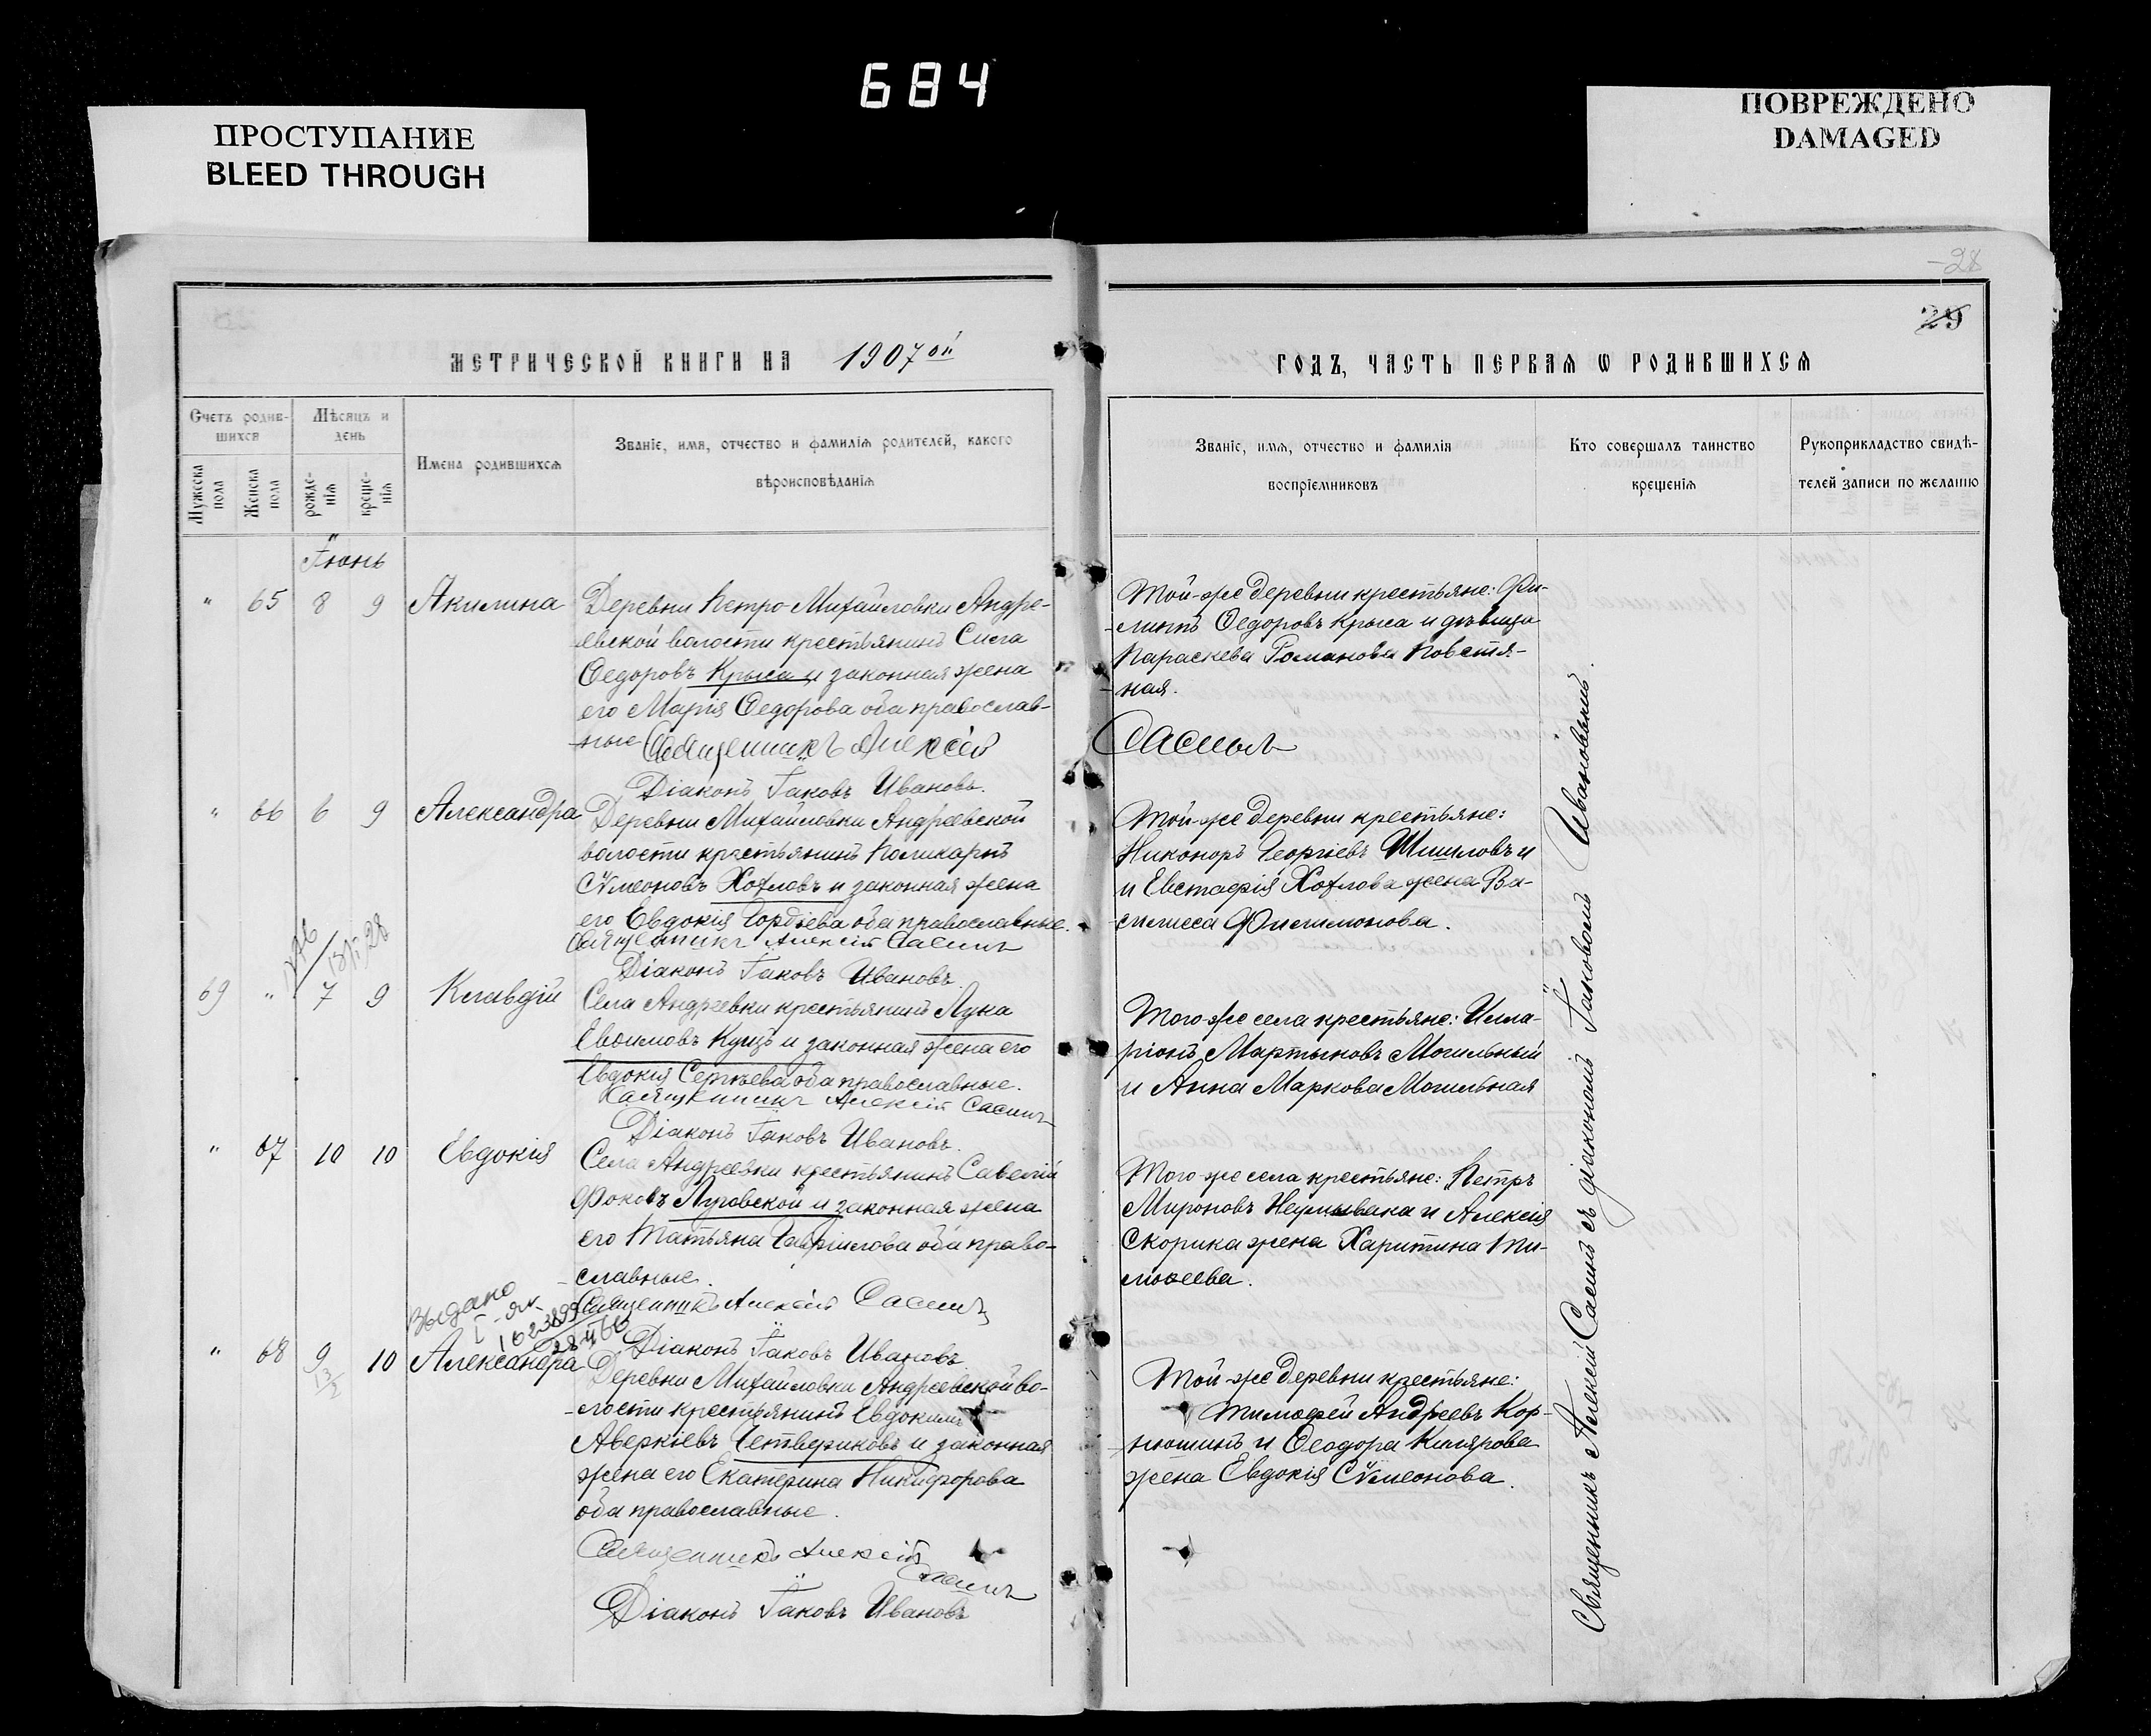 684
ПРОСТУПАНИЕ
BLEED THROUGH
ПОВРЕЖДЕНО
DAMAGED
28
29
МЕТРИЧЕСКОЙ КНИГИ НА 1907ой
ГОДЪ, ЧАСТЬ ПЕРВАЯ Ѡ РОДИВШИХСЯ
Счетъ родив-
шихся
Мѣсяцъ и
день
Мужеска
пола
Женска
пола
рожде-
нія
креще-
нія
Имена родившихся
Званіе, имя, отчество и фамилія родителей, какого
вѣроисповѣданія
Званіе, имя, отчество и фамилія
воспріемниковъ
Кто совершалъ таинство
крещенія
Рукоприкладство свидѣ-
телей записи по желанію
Іюнь
" 65 8 9 Акилина
Деревни Петро-Михайловки Андре-
евской волости крестьянинъ Сила
Ѳедоровъ Крыса и законная жена
его Марія Ѳедорова оба православ-
ные Священникъ Алексій
Сасинъ
Діаконъ Іаковъ Ивановъ.
Той-же деревни крестьяне: Фи-
липпъ Ѳедоровъ Крыса и дѣвица
Параскева Романова Повстя-
ная.
" 66 6 9 Александра
Деревни Михайловки Андреевской
волости крестьянинъ Поликарпъ
Сѵмеоновъ Хохловъ и законная жена
его Евдокія Гордіева оба православные.
Священникъ Алексій Сасинъ
Діаконъ Іаковъ Ивановъ.
Той-же деревни крестьяне:
Никоноръ Георгіевъ Шишловъ и
и Евстафія Хохлова жена Ва-
силисса Филимонова.
69 " 7 9 Клавдій
Села Андреевки крестьянинъ Лука
Евѳимовъ Куцъ и законная жена его
Евдокія Сергѣева оба православные.
Священникъ Алексій Сасинъ
Діаконъ Іаковъ Ивановъ.
Того-же села крестьяне: Илла-
ріонъ Мартыновъ Могильный
и Анна Маркова Могильная
" 67 10 10 Евдокія
Села Андреевки крестьянинъ Савелій
Фоковъ Луговской и законная жена
его Татьяна Гавріилова оба право-
славные.
Священникъ Алексій Сасинъ
Діаконъ Іаковъ Ивановъ.
Того-же села крестьяне: Петръ
Мироновъ Неумывака и Алексія
Скорика жена Харитина Ти-
моѳеева.
Выдано
" 68 9 10 Александра
Деревни Михайловки Андреевской во-
лости крестьянинъ Евдокимъ
Аверкіевъ Четвериковъ и законная
жена его Екатерина Никифорова
оба православные.
Священникъ Алексій
Сасинъ
Діаконъ Іаковъ Ивановъ
Той-же деревни крестьяне:
Тимофей Андреевъ Кор-
нюшинъ и Ѳеодора
жена Евдокія Сѵмеонова.
Священникъ Алексій Сасинъ съ діакономъ Іаковомъ Ивановымъ.